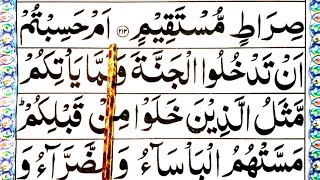 صِرَاطٍ مُّسْتَقِيْمٍ ﴿۲۱۳﴾ اَمْ حَسِبْتُمْ
اَنْ تَدْخُلُوا الْجَنَّةَ وَلَمَّا يَاْتِكُمْ
مَّثَلُ الَّذِيْنَ خَلَوْا مِنْ قَبْلِكُمْ ؕ
مَسَّتْهُمُ الْبَاْسَآءُ وَالضَّرَّآءُ وَ